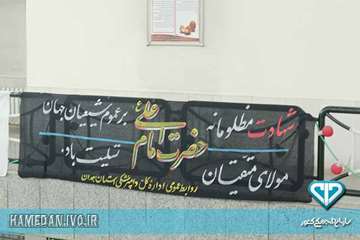 شهادت مظلومانه
مولای متقیان
حضرت امام علی
بر عموم شیعیان جهان
تسلیت باد.
روابط عمومی اداره کل دامپزشکی استان همدان
HAMEDAN.IVO.IR
سازمان دامپزشکی کشور